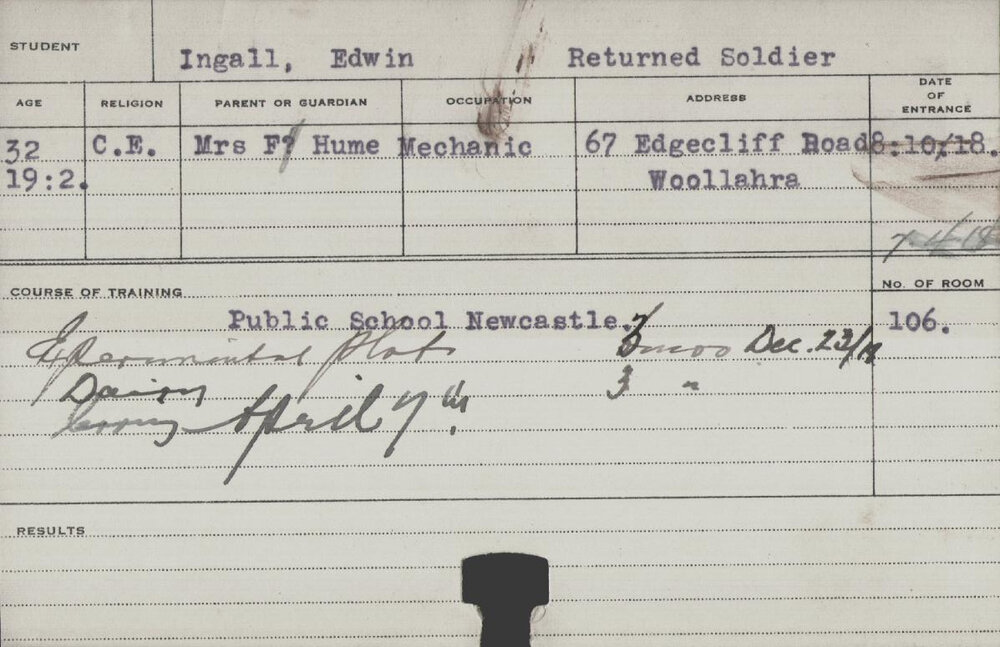 STUDENT
Ingall, Edwin Returned Soldier
AGE RELIGION PARENT OR GUARDIAN OCCUPATION ADDRESS DATE OF ENTRANCE
32 C.E. Mrs F? Hume Mechanic 67 Edgecliff Road 8:10/18.
19:2. Woollahra
7-4-19
COURSE OF TRAINING No. OF ROOM
Public School Newcastle. 106.
Experimental plots 3 mos Dec. 23/18
Dairy 3 "
leaving April 7th.
RESULTS